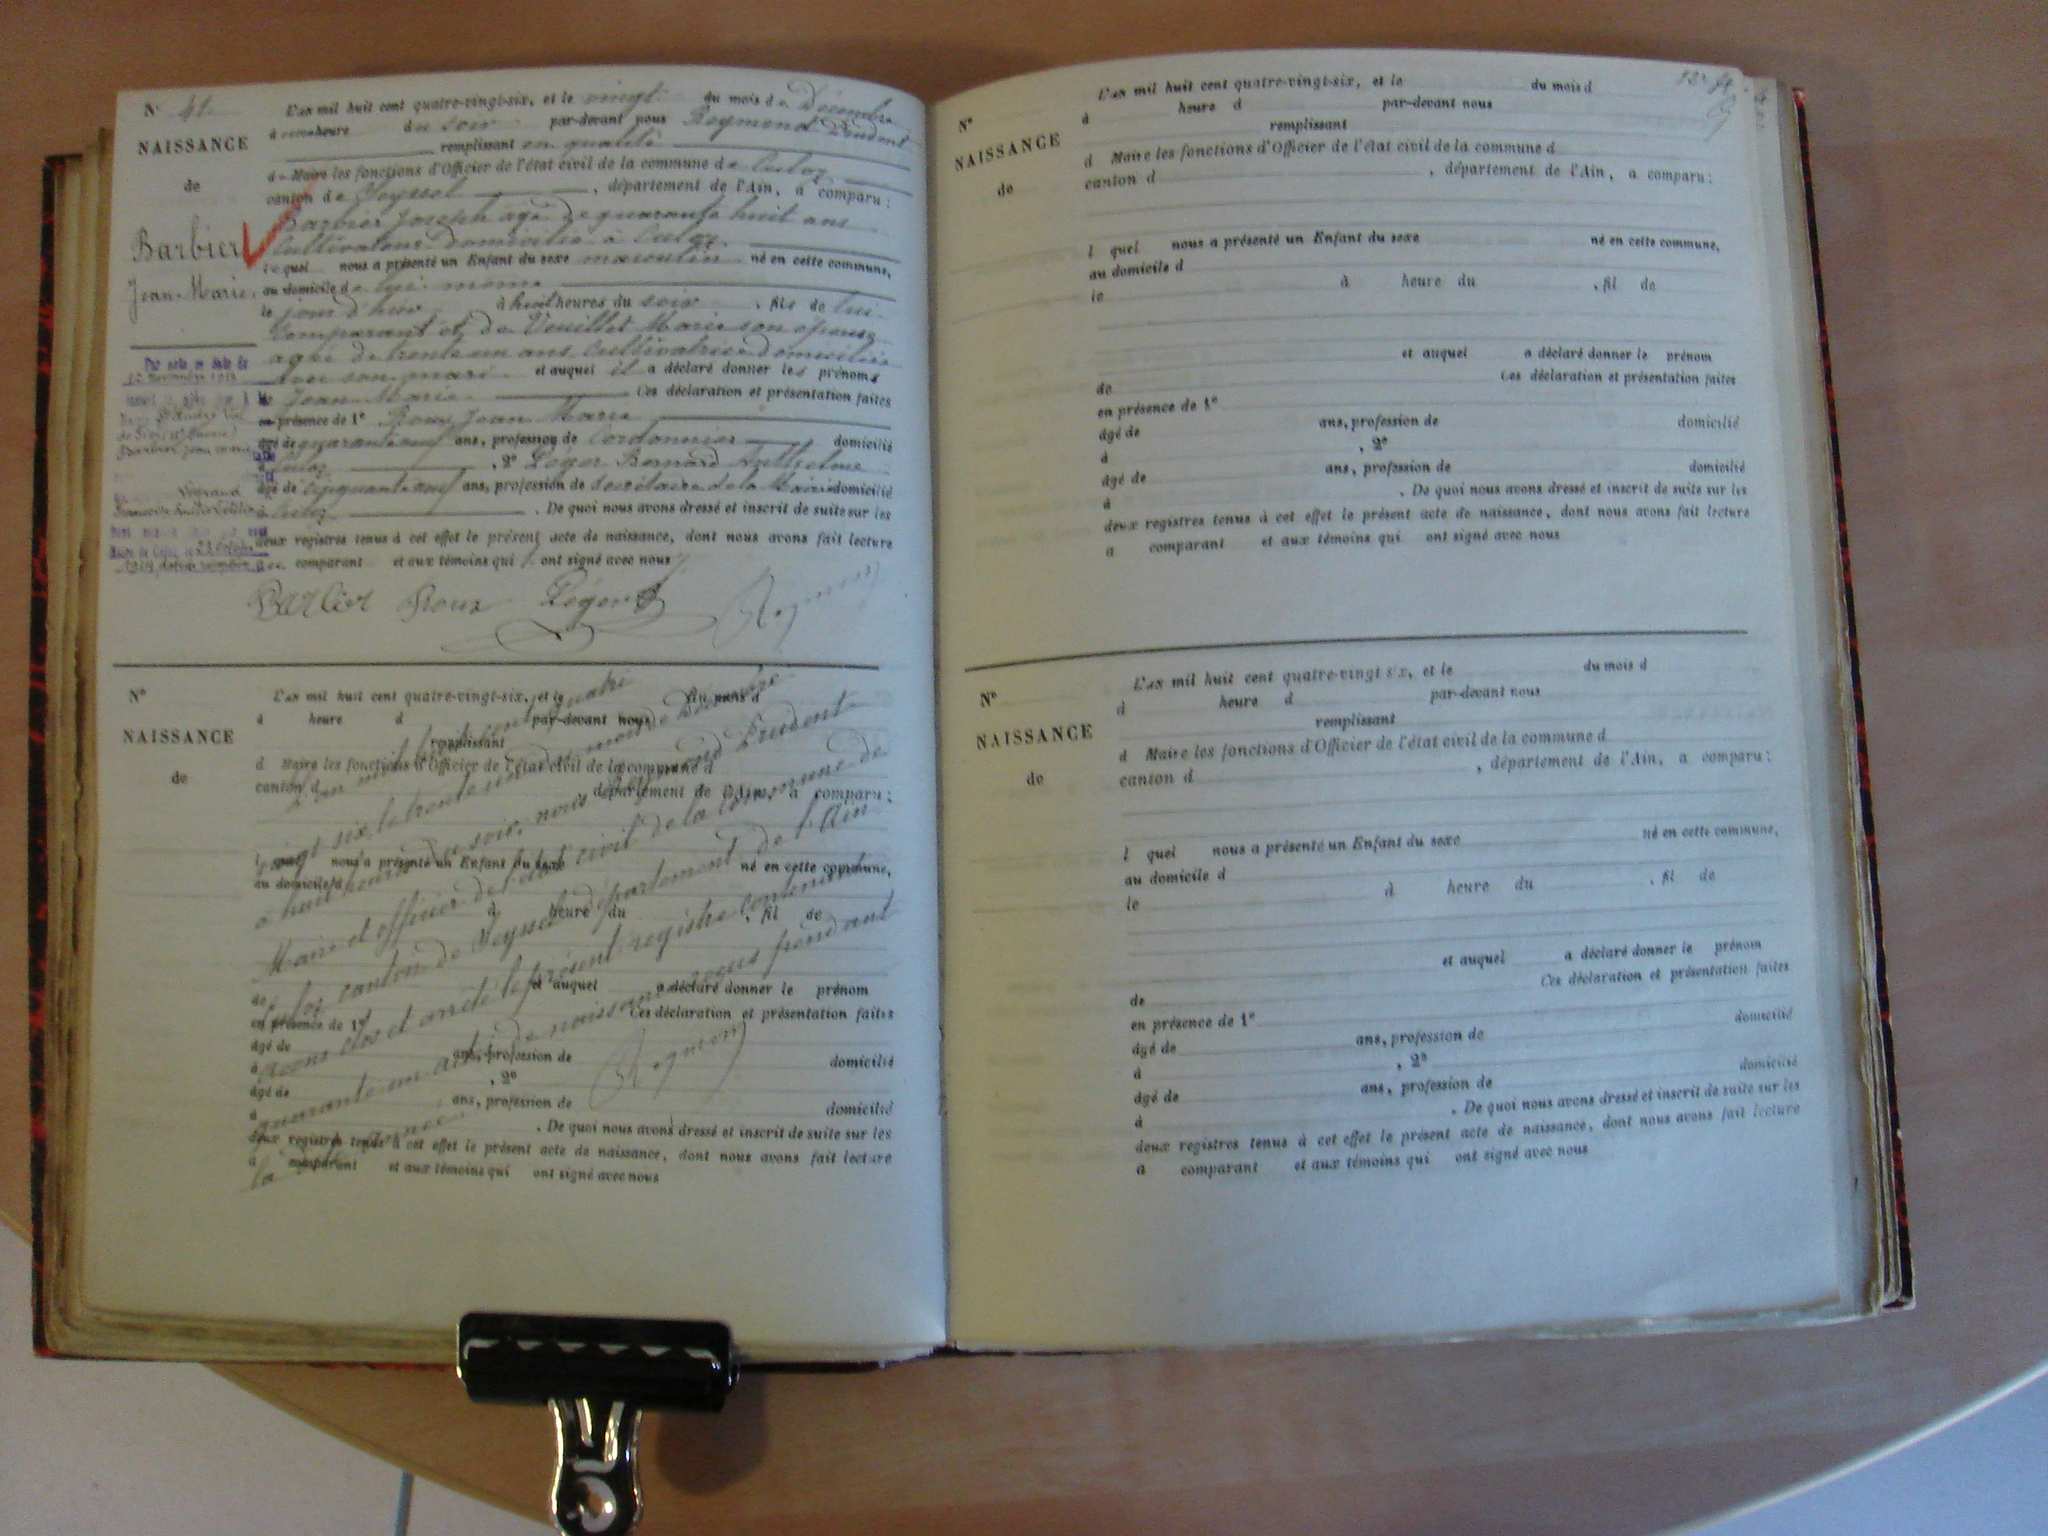 N° 41.
NAISSANCE
de
Barbier
Jean-Marie.
L'an mil huit cent quatre-vingt-six, et le vingt du mois de Décembre
à heure du soir par-devant nous Reymond Prudent
remplissant en qualité
de Maire les fonctions d'Officier de l'état civil de la commune de Culoz
canton de Seyssel, département de l'Ain, a comparu:
Barbier Joseph agé de quarante huit ans
Cultivateur domicilié à Culoz.
lequel nous a présenté un Enfant du sexe masculin né en cette commune,
au domicile de lui même
le jour d'hier à huit heures du soir, fils de lui
Comparant et de Vuillet Marie son épouse
agée de trente un ans Cultivatrice domiciliée
avec son mari et auquel il a déclaré donner les prénoms
de Jean Marie. Ces déclaration et présentation faites
en présence de 1° Roux Jean Marie
âgé de quarante neuf ans, profession de Cordonnier domicilié
à Culoz, 2° Léger Bernard Anthelme
âgé de Cinquante neuf ans, profession de Secrétaire de la Mairie domicilié
à Culoz. De quoi nous avons dressé et inscrit de suite sur les
deux registres tenus à cet effet le présent acte de naissance, dont nous avons fait lecture
au comparant et aux témoins qui ont signé avec nous
Barbier Roux Léger Reymond
Par acte en date du
novembre 1913
Barbier Jean Marie
1919
N°
NAISSANCE
de
L'an mil huit cent quatre-vingt-six, et le du mois d
à heure d par-devant nous
remplissant
d Maire les fonctions d'Officier de l'état civil de la commune d
canton d département de l'Ain, a comparu:
l quel nous a présenté un Enfant du sexe né en cette commune,
au domicile d
à heure du, fil de
et auquel a déclaré donner le prénom
de Ces déclaration et présentation faites
en présence de 1°
âgé de ans, profession de domicilié
à, 2°
âgé de ans, profession de domicilié
à. De quoi nous avons dressé et inscrit de suite sur les
deux registres tenus à cet effet le présent acte de naissance, dont nous avons fait lecture
a comparant et aux témoins qui ont signé avec nous
L'an mil huit cent quatre
vingt six le trente un du mois de Décembre
à huit heures du soir, nous Reymond Prudent
Maire et officier de l'état civil de la Commune de
Culoz canton de Seyssel département de l'Ain
avons clos et arrêté le présent registre contenant
quarante un actes de naissance reçus pendant
la
Reymond
N°
NAISSANCE
de
L'an mil huit cent quatre-vingt-six, et le du mois d
à heure d par-devant nous
remplissant
d Maire les fonctions d'Officier de l'état civil de la commune d
canton d, département de l'Ain, a comparu:
l quel nous a présenté un Enfant du sexe né en cette commune,
au domicile d
le à heure du, fil de
et auquel a déclaré donner le prénom
de Ces déclaration et présentation faites
en présence de 1°
âgé de ans, profession de domicilié
à, 2°
âgé de ans, profession de domicilié
à. De quoi nous avons dressé et inscrit de suite sur les
deux registres tenus à cet effet le présent acte de naissance, dont nous avons fait lecture
a comparant et aux témoins qui ont signé avec nous
N°
NAISSANCE
de
L'an mil huit cent quatre-vingt six, et le du mois d
à heure d par-devant nous
remplissant
d Maire les fonctions d'Officier de l'état civil de la commune d
canton d, département de l'Ain, a comparu:
l quel nous a présenté un Enfant du sexe né en cette commune,
au domicile d
le à heure du, fil de
et auquel a déclaré donner le prénom
de Ces déclaration et présentation faites
en présence de 1°
âgé de ans, profession de domicilié
à, 2°
âgé de ans, profession de domicilié
à. De quoi nous avons dressé et inscrit de suite sur les
deux registres tenus à cet effet le présent acte de naissance, dont nous avons fait lecture
a comparant et aux témoins qui ont signé avec nous